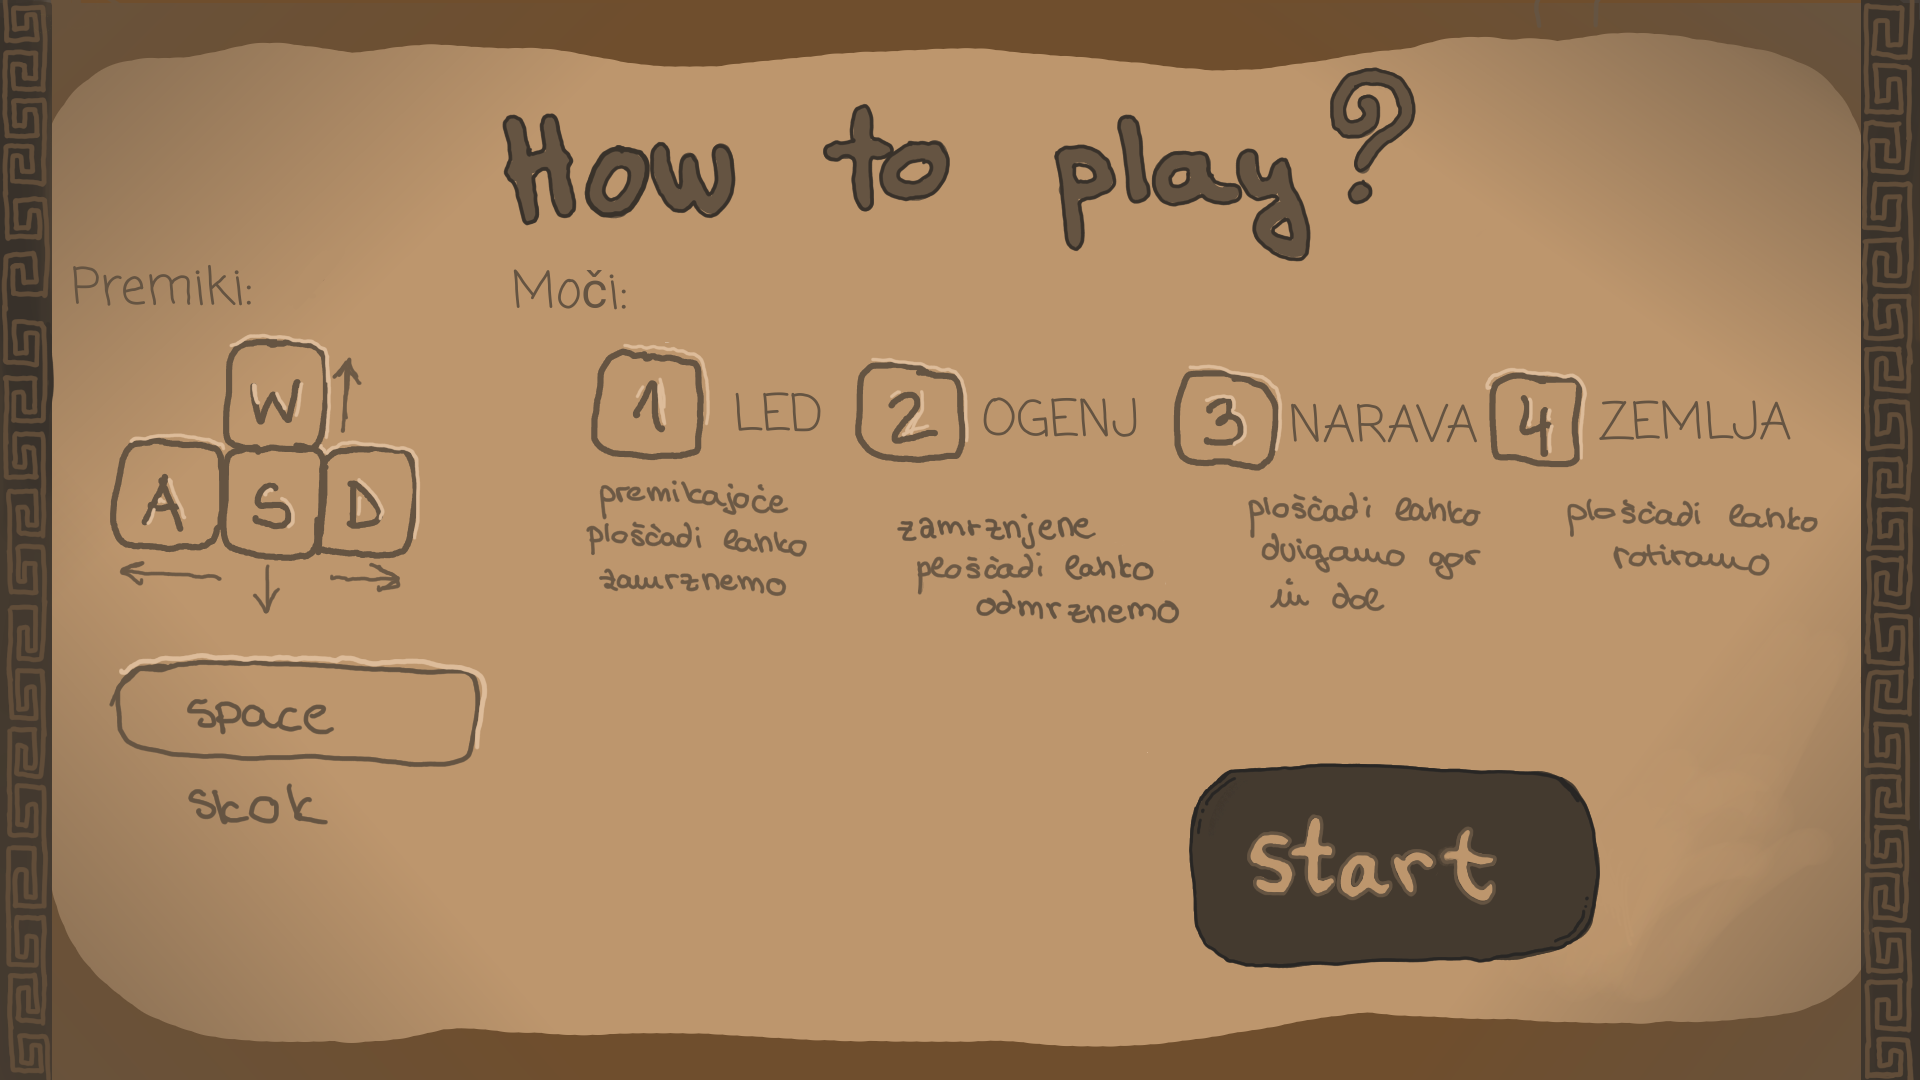 How to play?
Premiki:
Moči:
W
A S D
space
skok
1 LED
premikajoče
ploščadi lahko
zamrznemo
2 OGENJ
zamrznjene
ploščadi lahko
odmrznemo
3 NARAVA
ploščadi lahko
dvigamo gor
in dol
4 ZEMLJA
ploščadi lahko
rotiramo
start